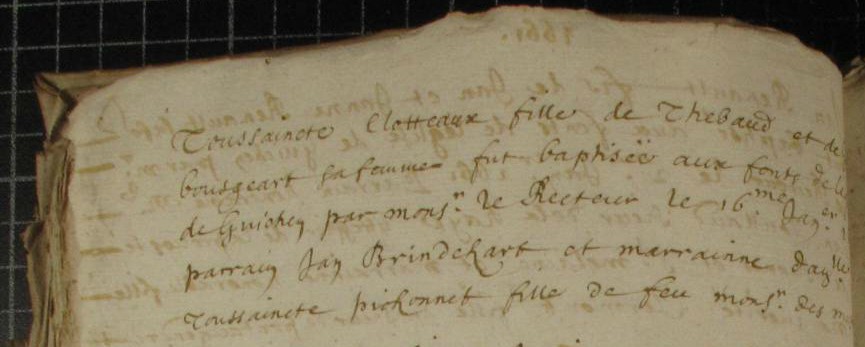 Toussaincte Clotteaux fille de Thebaud et de
bousgeart sa femme fut baptiseë aux fonts de le
de Guichen par mons.r le Recteur le 16.me Jan.er
parrain Jan Brindehart et marrainne dam.lle
Toussaincte pichonnet fille de feu mons.r des